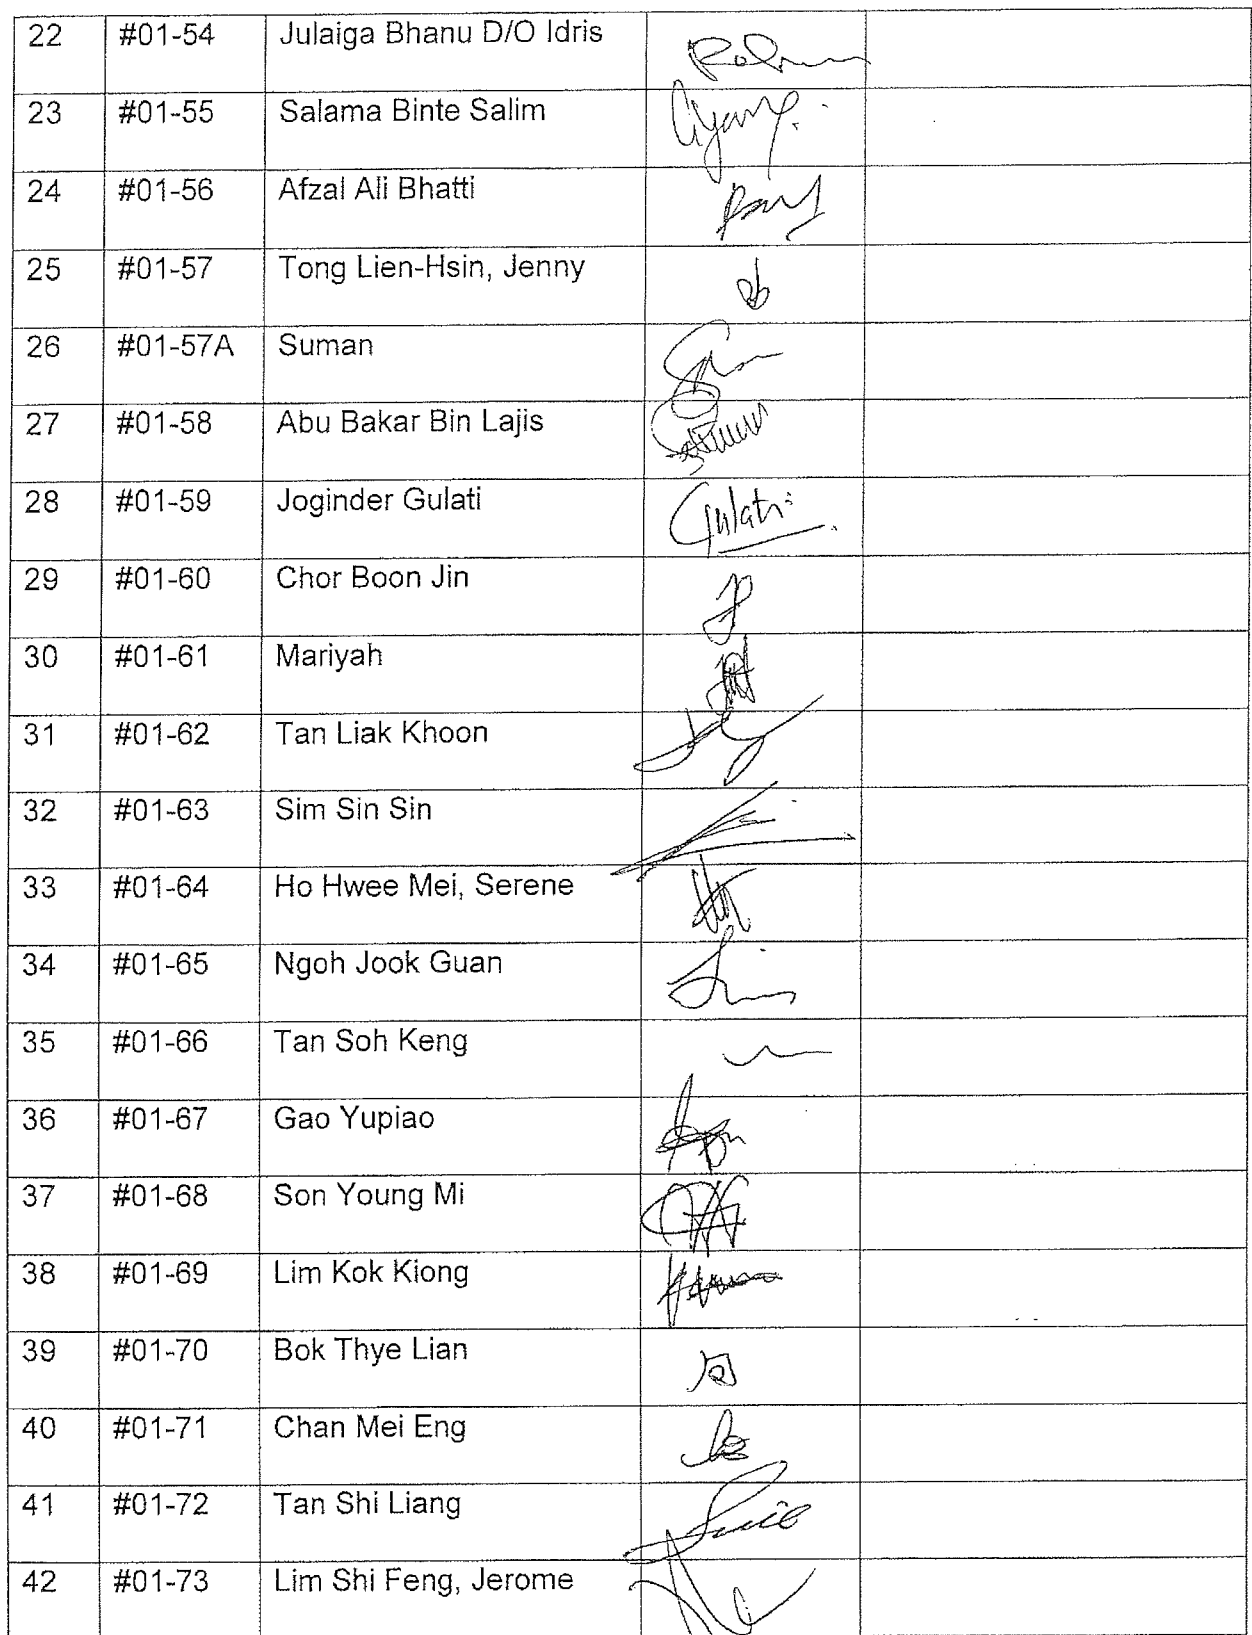 22 #01-54 Julaiga Bhanu D/O Idris
23 #01-55 Salama Binte Salim
24 #01-56 Afzal Ali Bhatti
25 #01-57 Tong Lien-Hsin, Jenny
26 #01-57A Suman
27 #01-58 Abu Bakar Bin Lajis
28 #01-59 Joginder Gulati Gulati
29 #01-60 Chor Boon Jin
30 #01-61 Mariyah
31 #01-62 Tan Liak Khoon
32 #01-63 Sim Sin Sin
33 #01-64 Ho Hwee Mei, Serene
34 #01-65 Ngoh Jook Guan
35 #01-66 Tan Soh Keng
36 #01-67 Gao Yupiao
37 #01-68 Son Young Mi
38 #01-69 Lim Kok Kiong
39 #01-70 Bok Thye Lian
40 #01-71 Chan Mei Eng
41 #01-72 Tan Shi Liang
42 #01-73 Lim Shi Feng, Jerome